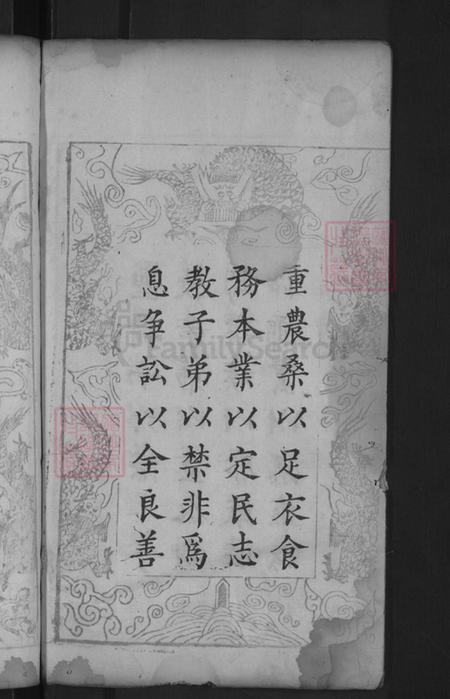 重農桑以足衣食
務本業以定民志
教子弟以禁非為
息爭訟以全良善
FamilySearch